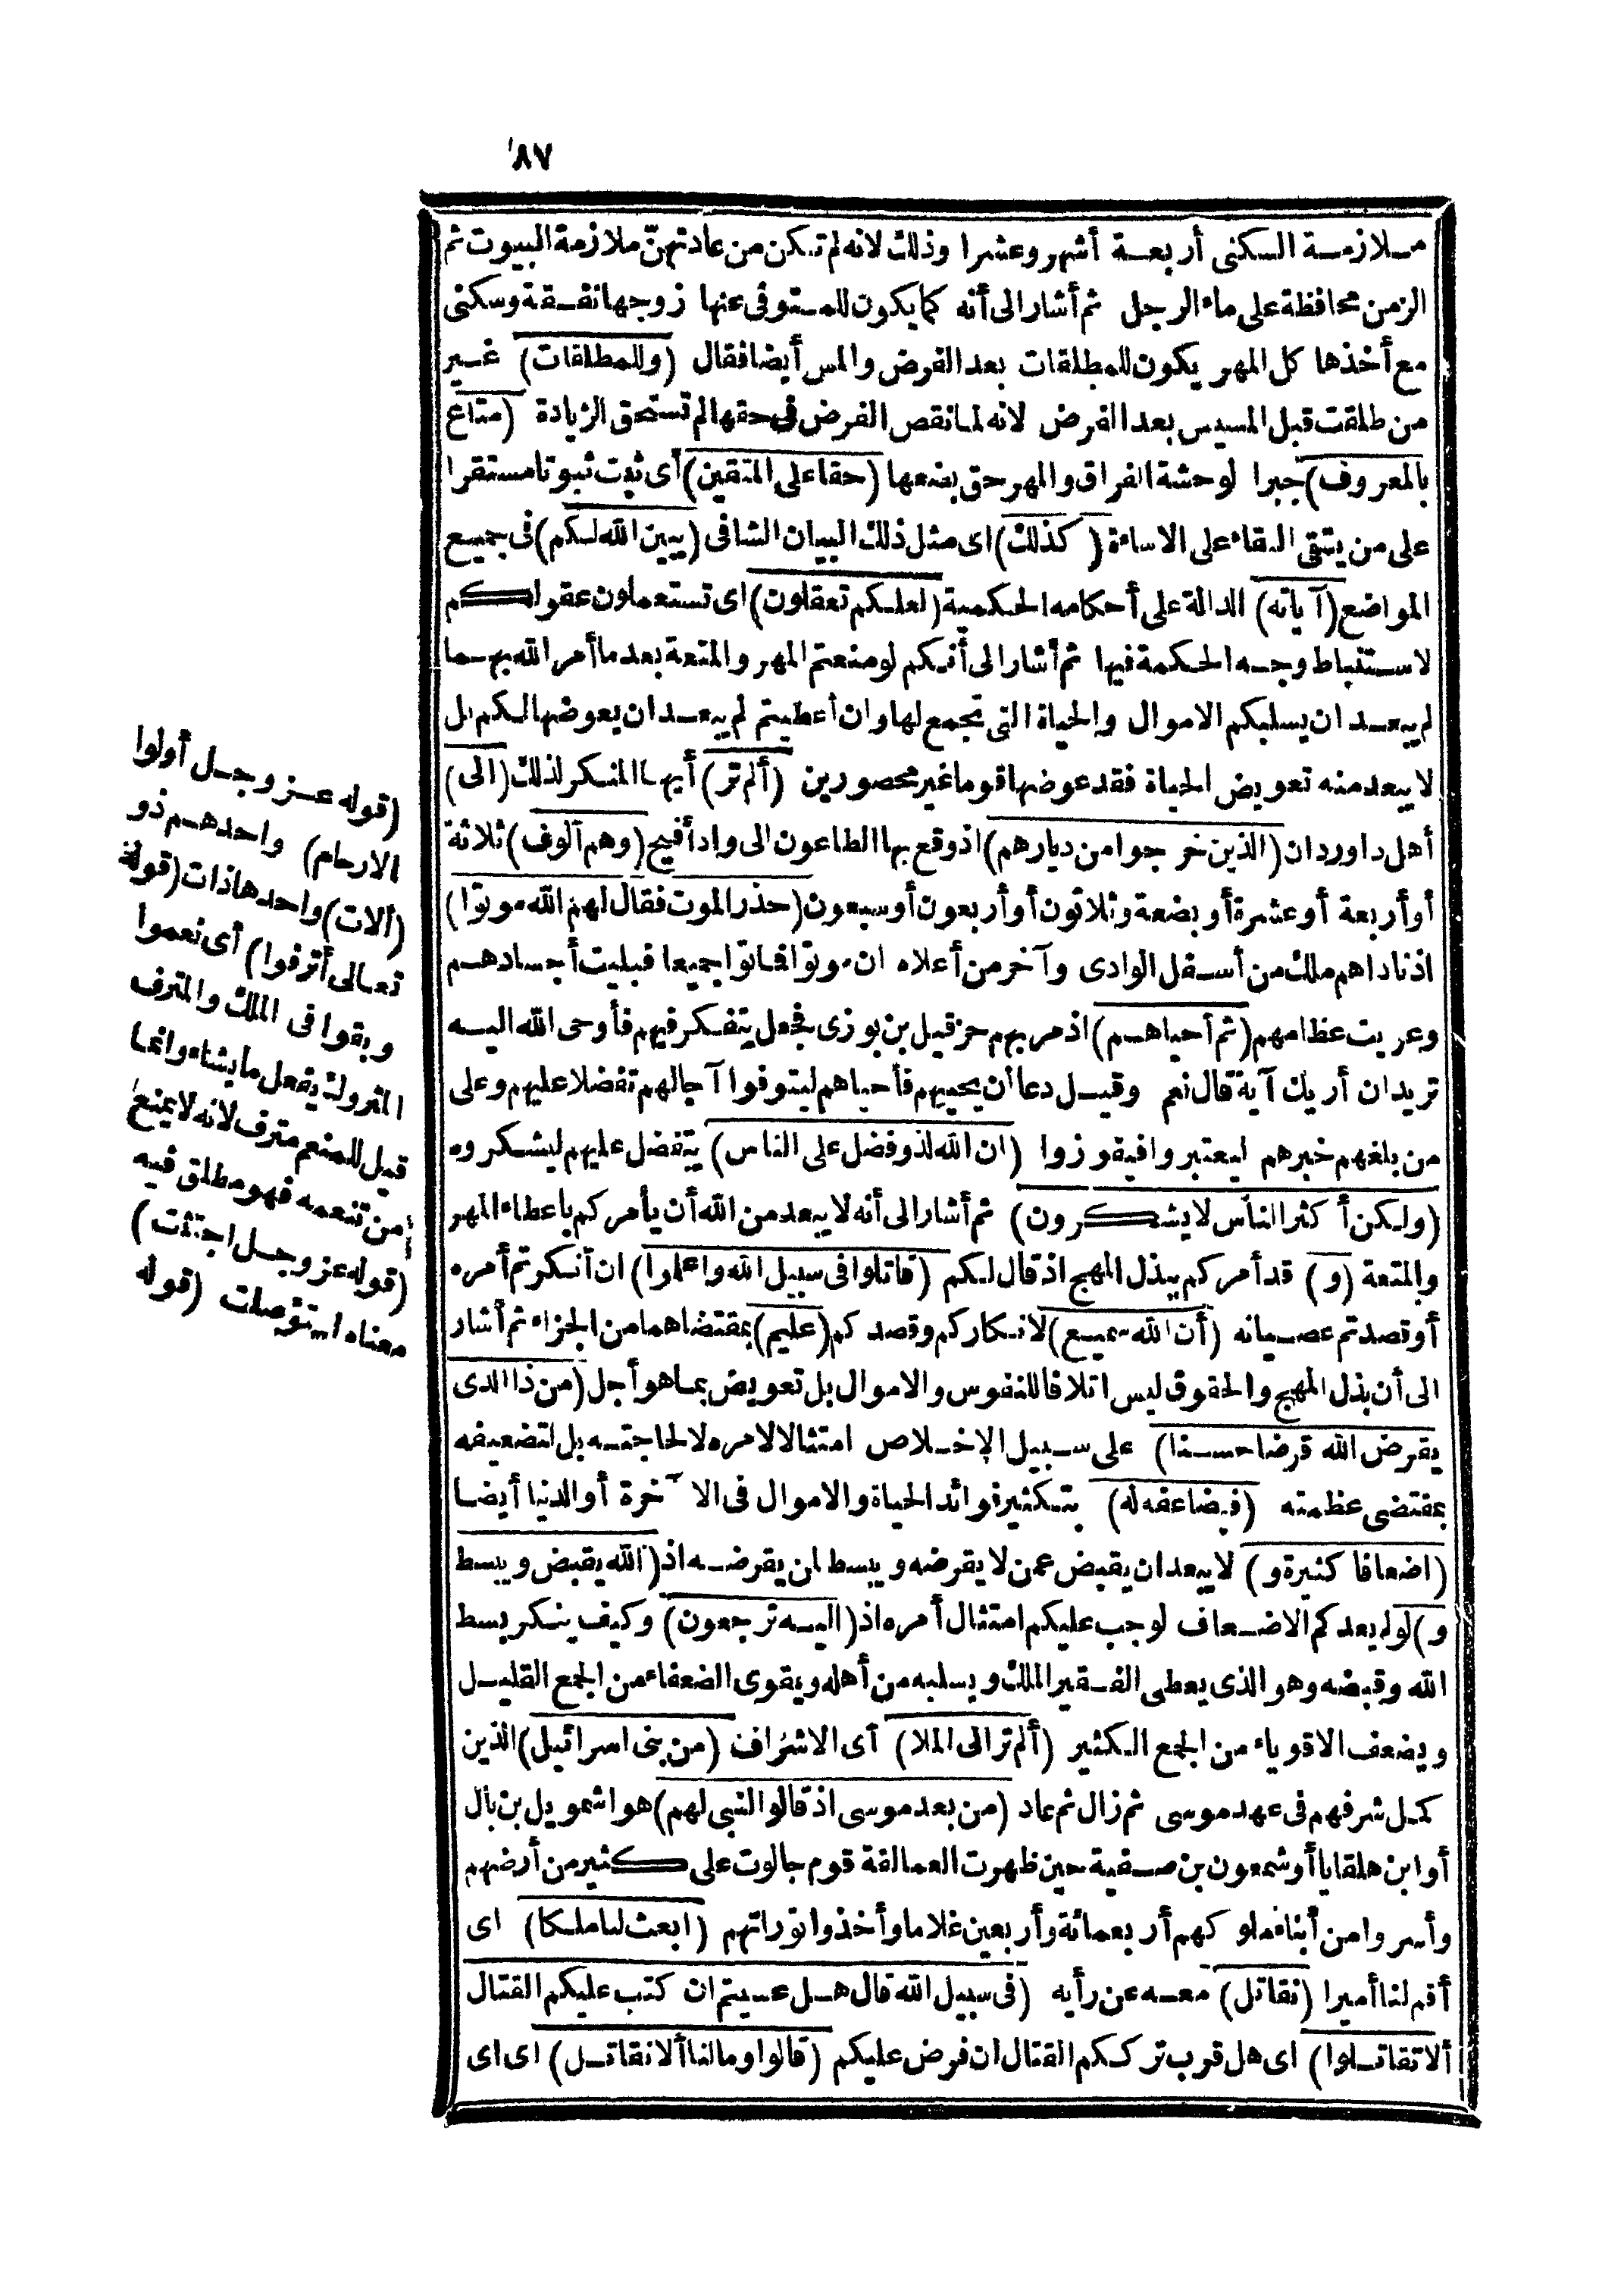 ٨٧
ملازمة السكنى أربعة أشهر وعشرا وذلك لانه لم تكن من عادتهنّ ملازمة البيوت ثم
الزمن محافظة على ماء الرجل ثم أشار الى أنه كما يكون للمتوفى عنها زوجها نفقة وسكنى
مع أخذها كل المهر يكون للمطلقات بعد الفرض والمس أيضا فقال (وللمطلقات) غير
من طلقت قبل المسيس بعد الفرض لانه لما نقص الفرض فى حقها لم تستحق الزيادة (متاع
بالمعروف) جبرا لوحشة الفراق والمهر حق بضعها (حقا على المتقين) أى ثبت ثبوتا مستقرا
على من يتقى البقاء على الاساءة (كذلك) اى مثل ذلك البيان الشافى (يبين الله لكم) فى جميع
المواضع (آياته) الدالة على أحكامه الحكمية (لعلكم تعقلون) اى تستعملون عقولكم
لاستنباط وجه الحكمة فيها ثم أشار الى أنكم لو منعتم المهر والمتعة بعد ما أمر الله بهما
لم يبعد ان يسلبكم الاموال والحياة التى تجمع لها وان أعطيتم لم يبعد ان يعوضها لكم بل
لا يبعد منه تعويض الحياة فقد عوضها قوما غير محصورين (ألم تر) أيها المنكر لذلك (الى)
أهل داوردان (الذين خرجوا من ديارهم) اذ وقع بها الطاعون الى واد أفيح (وهم آلوف) ثلاثة
أو أربعة أو عشرة أو بضعة وثلاثون أو أربعون أو سبعون (حذر الموت فقال لهم الله موتوا)
اذ ناداهم ملك من أسفل الوادى وآخر من أعلاه ان موتوا فماتوا جميعا فبليت أجسادهم
وعريت عظامهم (ثم أحياهم) اذ مر بهم حزقيل بن بوزى فجعل يتفكر فيهم فأوحى الله اليه
تريد ان أريك آية قال نعم وقيل دعا أن يحييهم فأحياهم ليتوفوا آجالهم تفضلا عليهم وعلى
من بلغهم خبرهم ليعتبروا فيفوزوا (ان الله لذو فضل على الناس) يتفضل عليهم ليشكروه
(ولكن أكثر الناس لا يشكرون) ثم أشار الى أنه لا يبعد من الله أن يأمركم باعطاء المهر
والمتعة (و) قد أمركم ببذل المهج اذ قال لكم (قاتلوا فى سبيل الله واعلموا) ان أنكرتم أمره
أو قصدتم عصيانه (أن الله سميع) لانكاركم وقصدكم (عليم) بمقتضاهما من الجزاء ثم أشار
الى أن بذل المهج والحقوق ليس اتلافا للنفوس والاموال بل تعويض بما هو أجل (من ذا الذى
يقرض الله قرضا حسنا) على سبيل الإخلاص امتثالا لامره لا لحاجته بل لتضعيفه
بمقتضى عظمته (فيضاعفه له) بتكثير فوائد الحياة والاموال فى الآخرة أو الدنيا أيضا
(اضعافا كثيرة و) لا يبعد ان يقبض عمن لا يقرضه ويبسط لمن يقرضه اذ (الله يقبض ويبسط
و) لو لم يعدكم الاضعاف لوجب عليكم امتثال أمره اذ (اليه ترجعون) وكيف ينكر بسط
الله وقبضه وهو الذى يعطى الفقير الملك ويسلبه من أهله ويقوى الضعفاء من الجمع القليل
ويضعف الاقوياء من الجمع الكثير (ألم تر الى الملا) أى الاشراف (من بنى اسرائيل) الذين
كمل شرفهم فى عهد موسى ثم زال ثم عاد (من بعد موسى اذ قالوا لنبى لهم) هو اشمويل بن بال
أو ابن هلقايا أو شمعون بن صفية حين ظهرت العمالقة قوم جالوت على كثير من أرضهم
وأسروا من أبناء ملوكهم أربعمائة وأربعين غلاما وأخذوا توراتهم (ابعث لنا ملكا) اى
أقم لنا أميرا (نقاتل) معه عن رأيه (فى سبيل الله قال هل عسيتم ان كتب عليكم القتال
ألا تقاتلوا) اى هل قرب ترككم القتال ان فرض عليكم (قالوا وما لنا ألا نقاتل) اى اى
(قوله عز وجل أولوا
الارحام) واحدهم ذو
(ألات) واحدها ذات (قوله
تعالى أترفوا) أى نعموا
وبقوا فى الملك والمترف
المتروك يفعل ما يشاء وانما
قيل للمنعم مترف لانه لا يمنع
من تنعمه فهو مطلق فيه
(قوله عز وجل اجتثت)
معناه استؤصلت (قوله